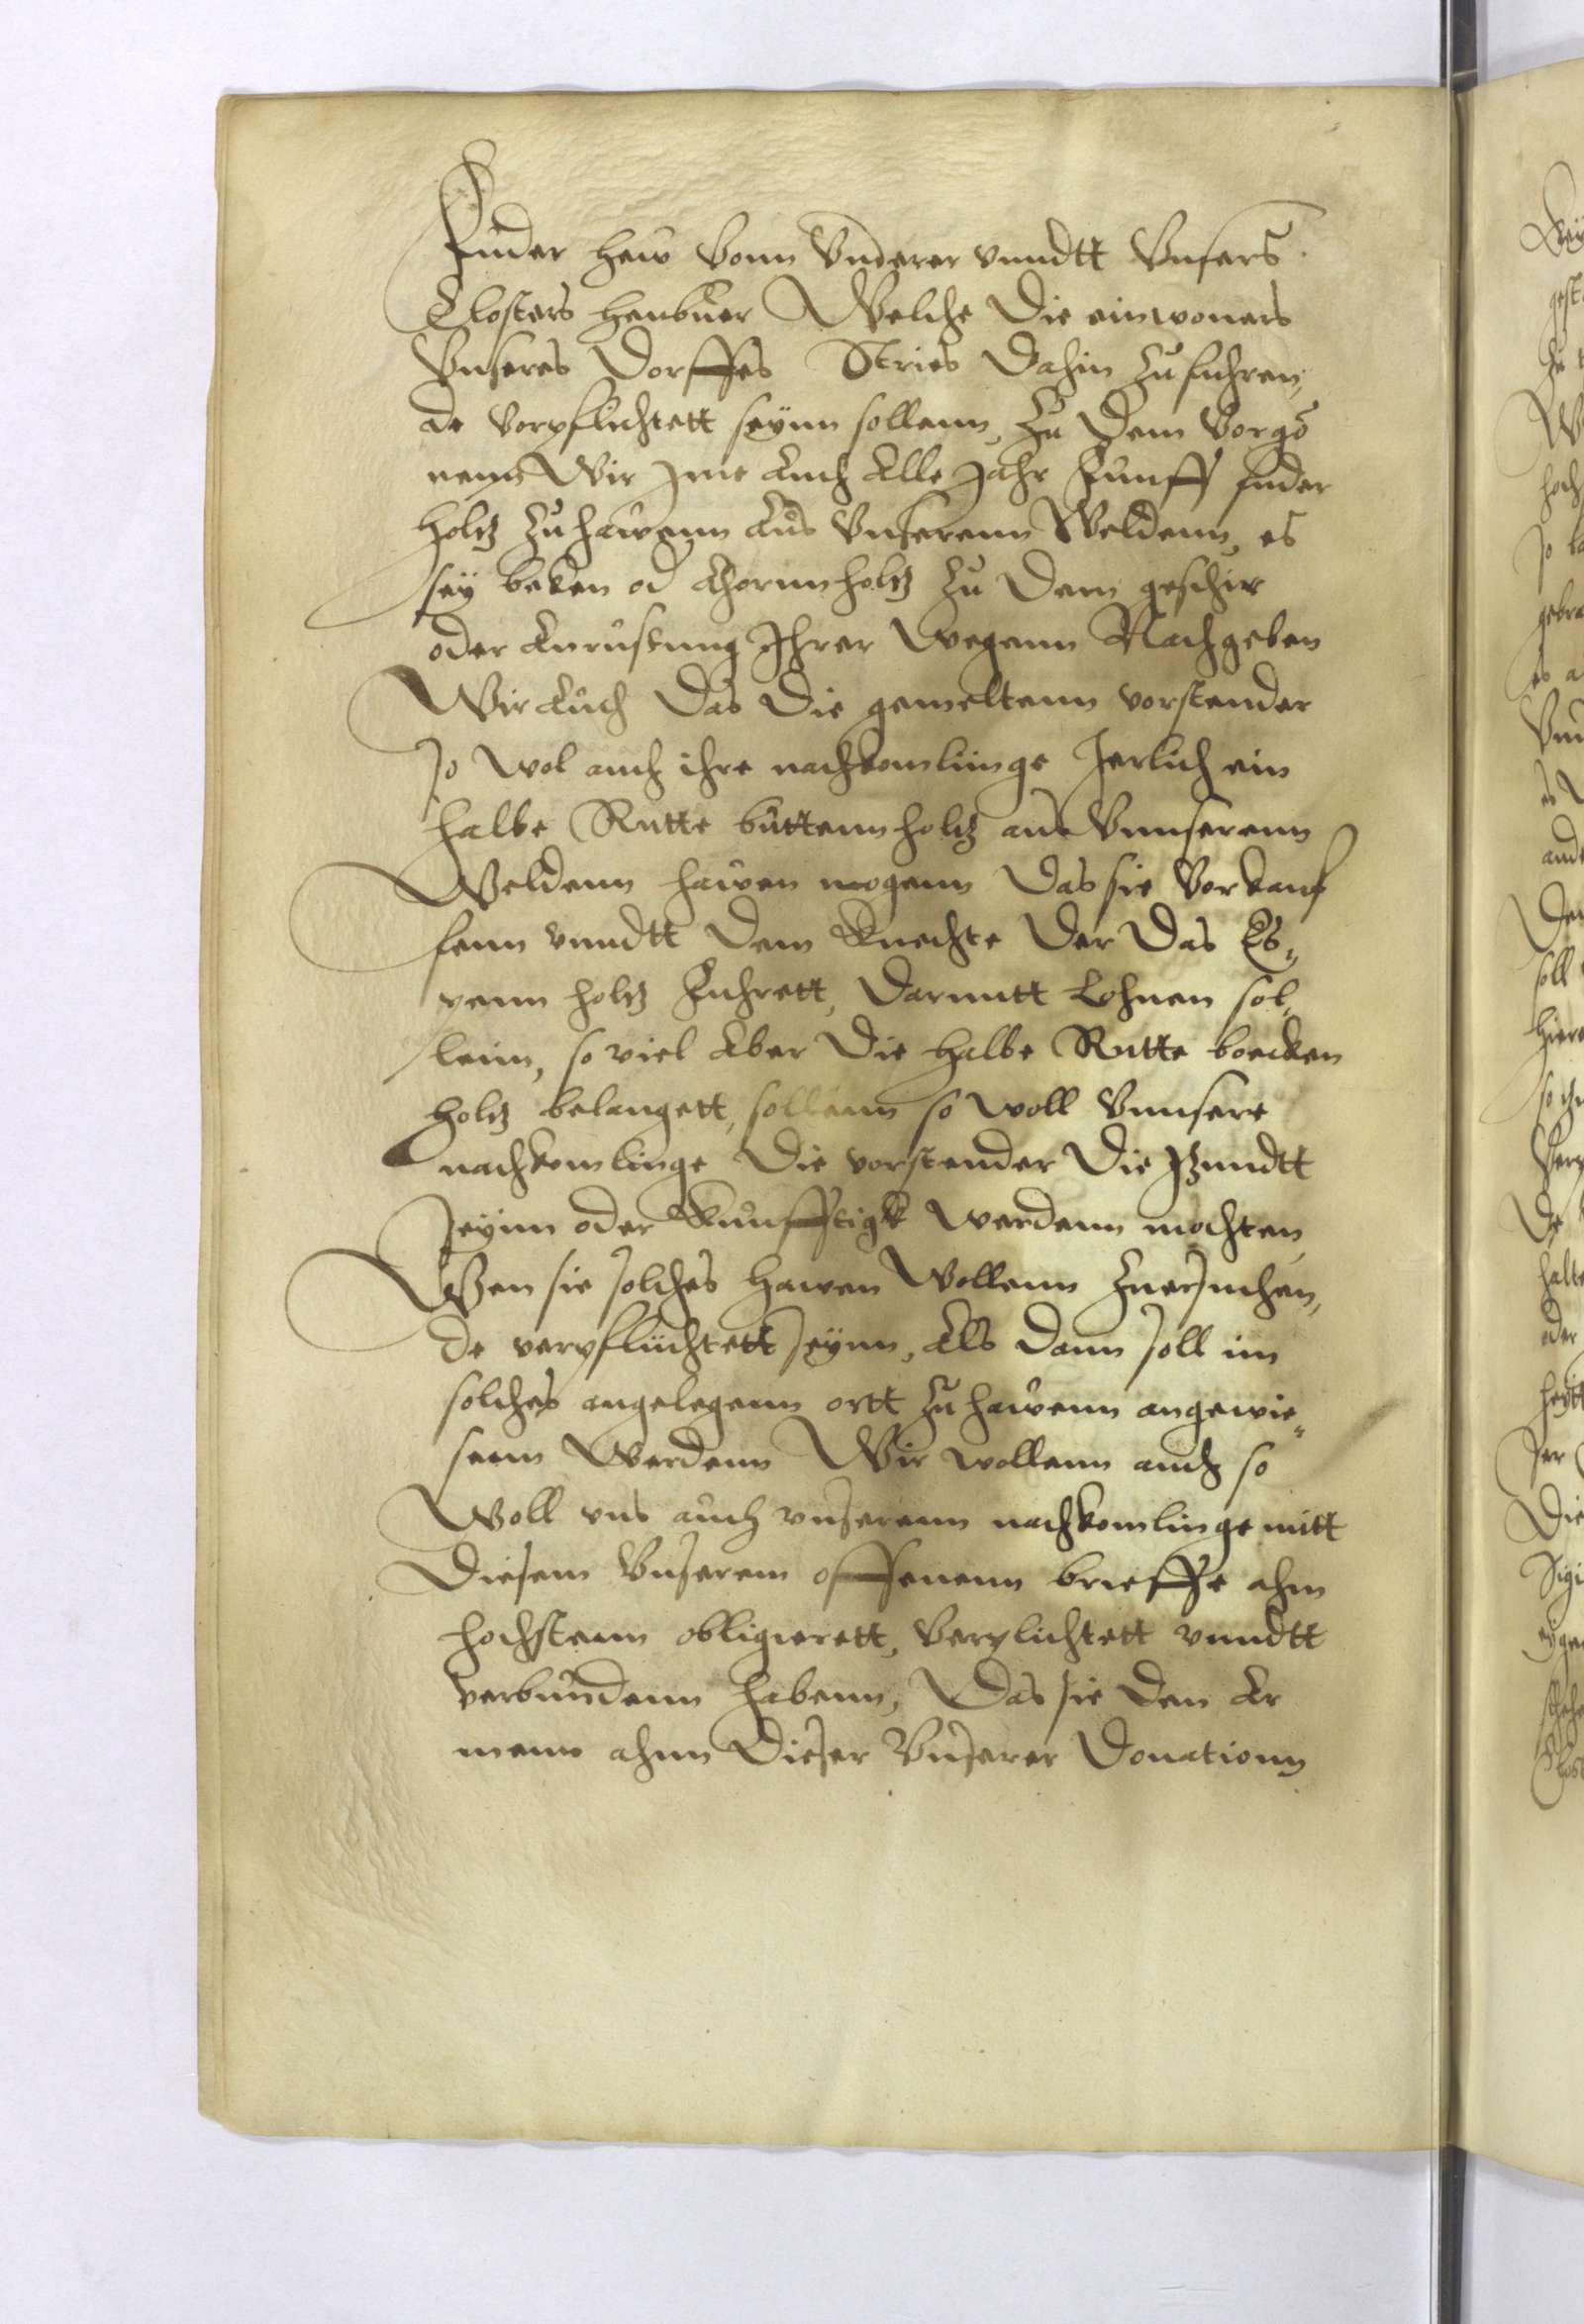 Fuder hew Vonn Vnderer vnndtt Vnsers
Closters henbuer Welche Die einwoners
Vnseres Dorffes Stries Dahin Zufuhren,
de Vorpflichtett seynn sollenn, Zu Dem Vorgö
nenn Wir Ime Auch Alle Jahr Funff fuder
holtz Zuhawenn Aus Vnserenn Weldenn, es
sey beken od Ahornnholtz Zu Dem geschir
oder Anrustung Ihrer Wegenn Nachgeben
Wir Auch Das Die gemeltenn vorstender
so Wol auch ihre nachkomlinge Jerlich ein
halbe Rutte büttennholtz aus Vnnserenn
Weldenn hawen mogenn Das sie Vorkauf
fenn vnndtt Dem Knechte Der Das Es,,
penn holtz Fuhrett, Darmitt Lohnen sol,
lenn, so viel Aber Die halbe Rutte boecken
holtz belangett, sollenn so woll Vnnsere
nachkomlinge Die vorstender Die Itzundtt
seynn oder Kunfftigk werdenn mochten,
Wen sie solches hawen Wollenn Zuersuchen,
de verpflichtett seynn, Als Dann soll im
solches angelegenn ortt Zuhawenn angewie,,
senn Werdenn Wir wollenn auch so
Woll vns auch vnserenn nachkomlinge mitt
Diesem Vnserem offenenn brieffe ahm
hochstenn obligierett, Verplichtett vnndtt
verbundenn habenn, Das sie Den Ar
menn ahnn Dieser Vnserer Donationn